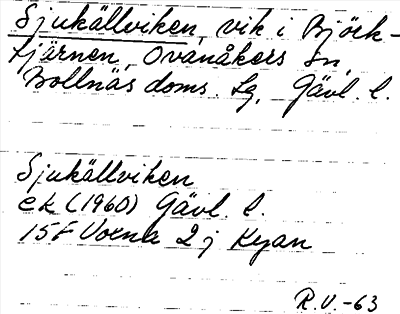 Sjukällviken, vik i Björk-
tjärnen, Ovanåkers sn,
Bollnäs doms. Lg, Gävl. l.
Sjukällviken
ek (1960) Gävl. l.
15F Voxna 2j Kyan
R.V. -63